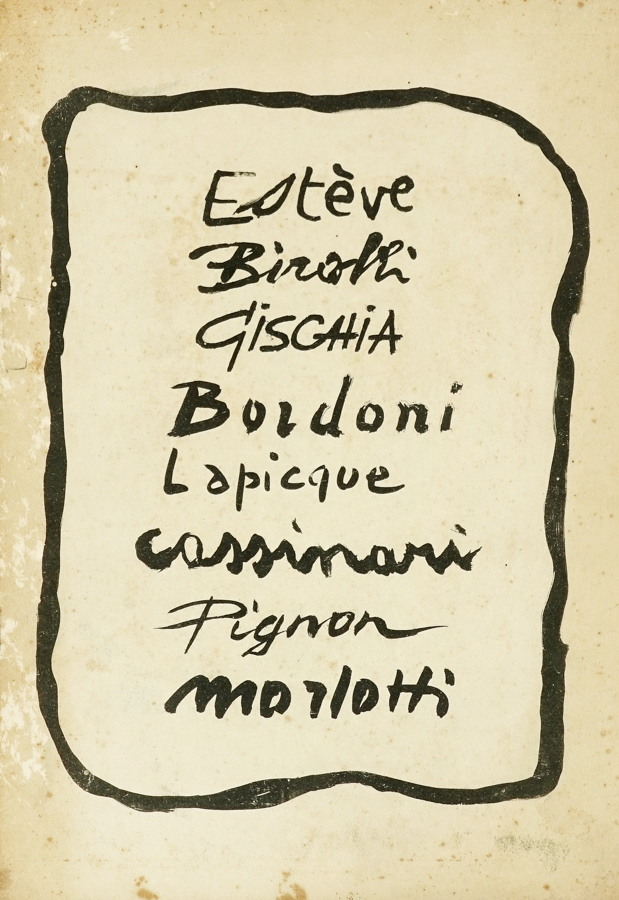 Estève
Birolli
GISCHIA
Bordoni
Lapicque
cassinari
Pignon
morlotti